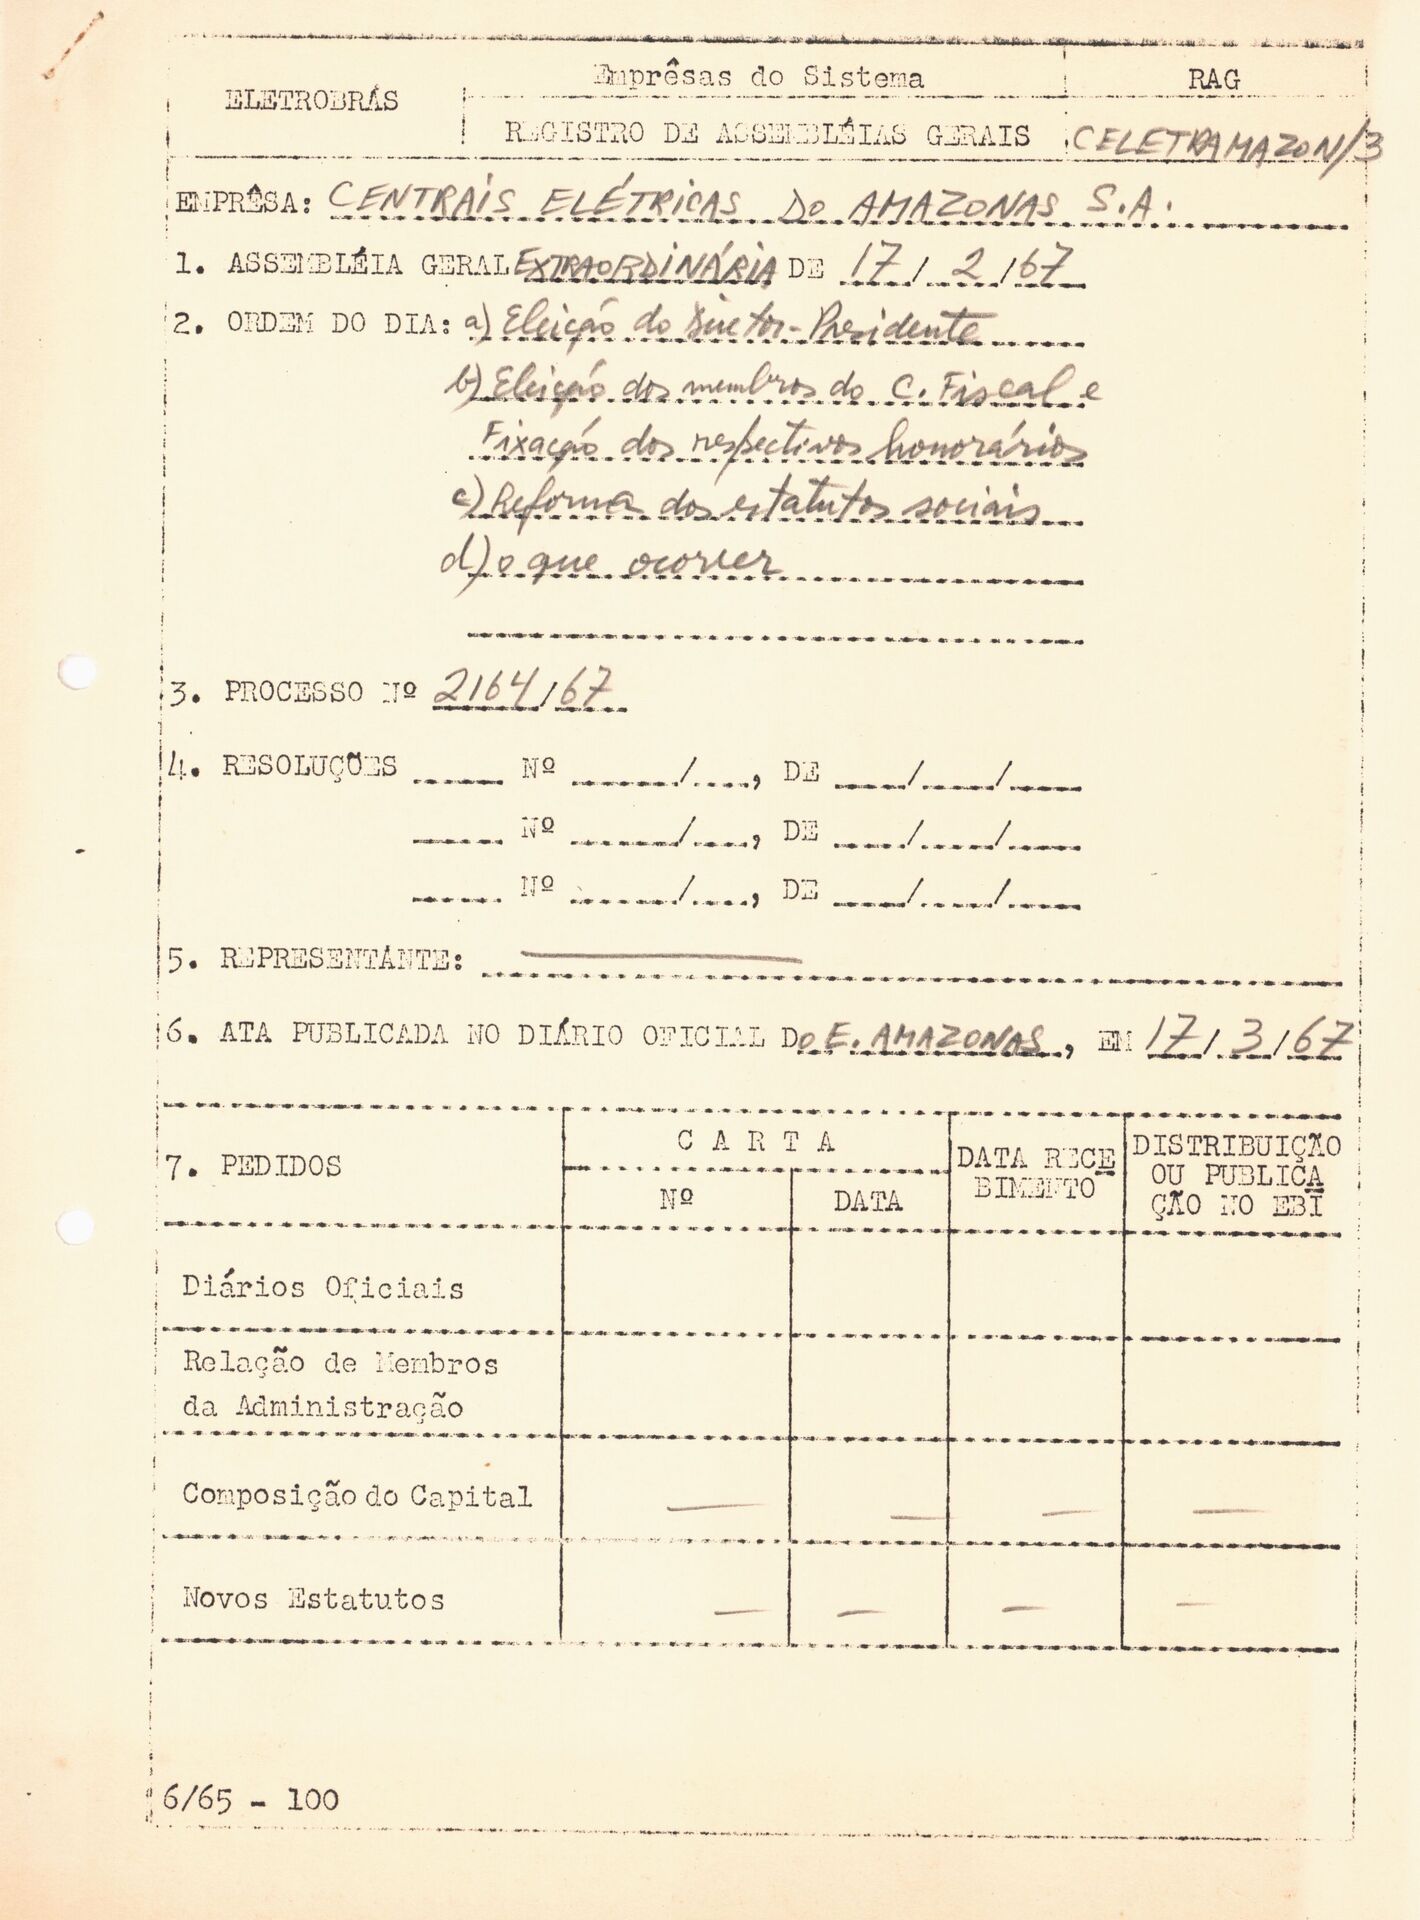 ELETROBRÁS
Emprêsas do Sistema
REGISTRO DE ASSEMBLÉIAS GERAIS
RAG
CELETRAMAZON/3
EMPRÊSA: CENTRAIS ELÉTRICAS DO AMAZONAS S.A.
1. ASSEMBLÉIA GERAL EXTRAORDINÁRIA DE 17/2/67
2. ORDEM DO DIA: a) Eleição do Diretor-Presidente
b) Eleição dos membros do C. Fiscal e
Fixação dos respectivos honorários
c) Reforma dos estatutos sociais
d) o que ocorrer
3. PROCESSO Nº 2164/67
4. RESOLUÇÕES Nº / , DE / /
Nº / , DE / /
Nº / , DE / /
5. REPRESENTANTE:
6. ATA PUBLICADA NO DIÁRIO OFICIAL DO E. AMAZONAS, EM 17/3/67
7. PEDIDOS
CARTA
Nº
DATA
DATA RECE
BIMENTO
DISTRIBUIÇÃO
OU PUBLICA
ÇÃO NO EBI
Diários Oficiais
Relação de Membros
da Administração
Composição do Capital — — — —
Novos Estatutos — — — —
6/65 - 100